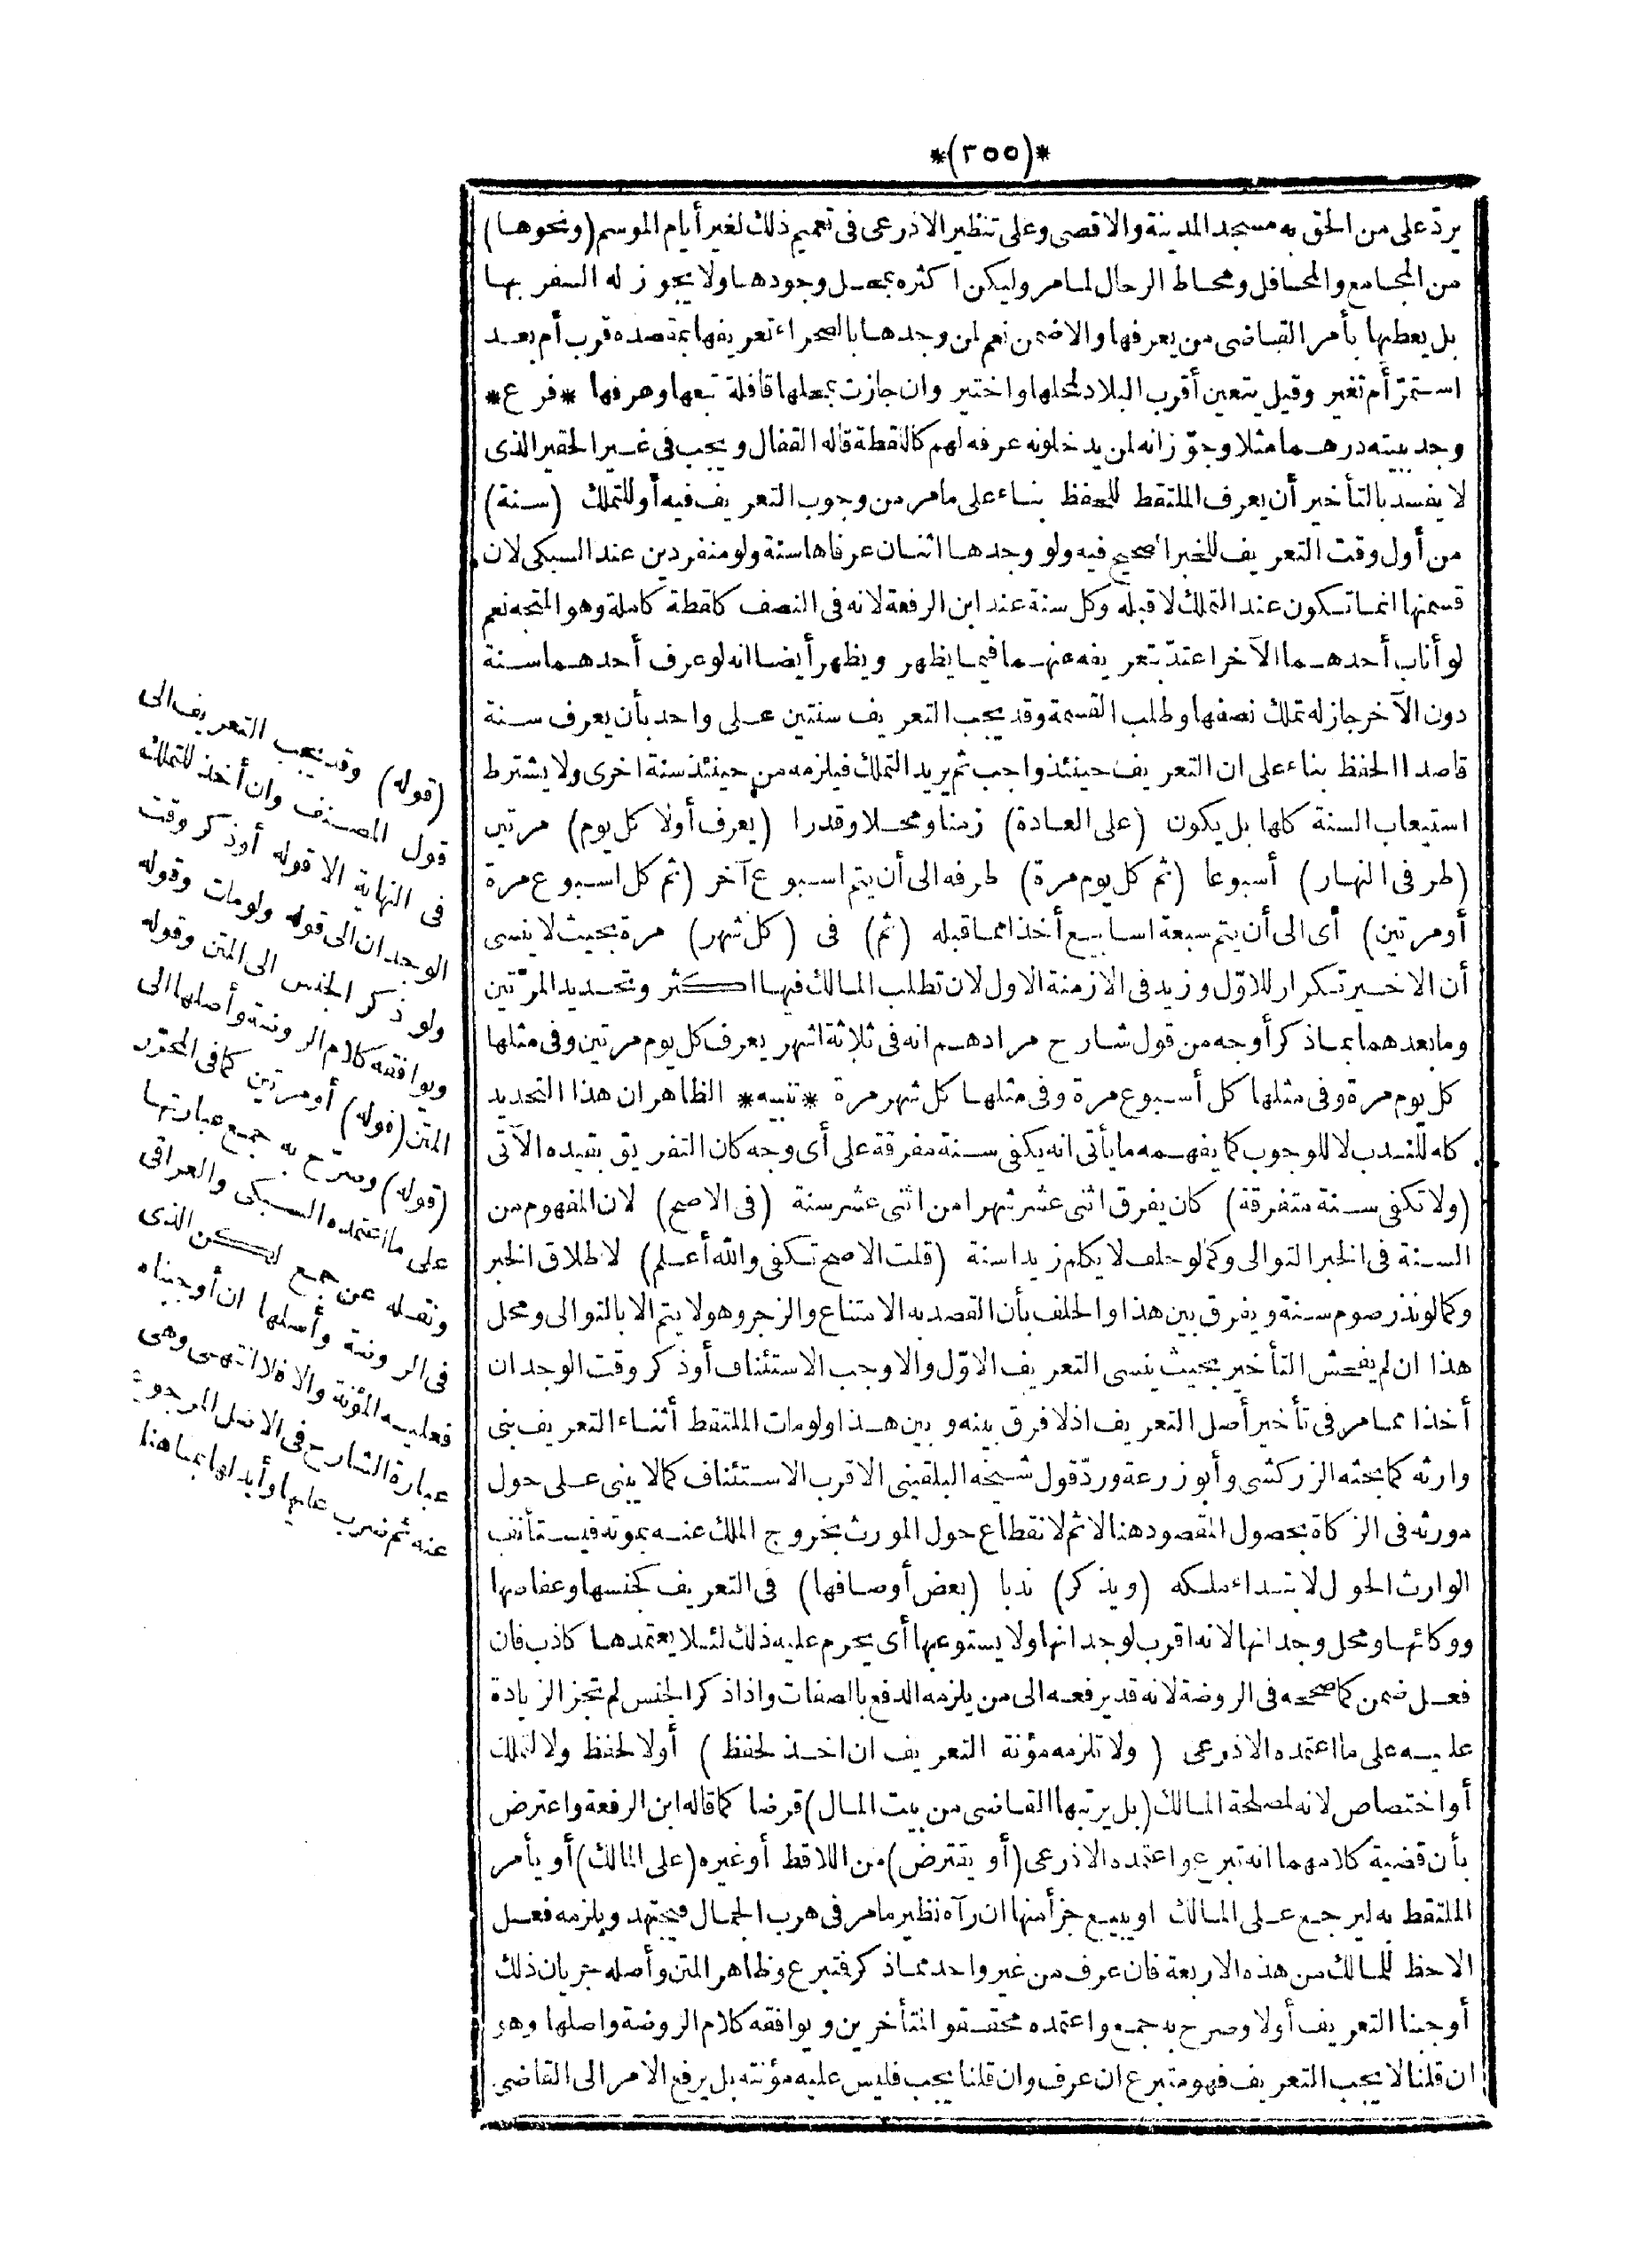 *(٢٥٥)*
يردّ على من الحق به مسجد المدينة والاقصى وعلى تنظير الاذرعى فى تعميم ذلك لغير أيام الموسم (ونحوها)
من المجامع والمحافل ومحاط الرحال لمامر وليكن اكثره بمحل وجودها ولا يجوز له السفر بها
بل يعطيها بأمر القاضى من يعرفها والاضمن نعم لمن وجدها بالصحراء تعريفها بمقصده قرب أم بعد
استمرّ أم تغير وقيل يتعين أقرب البلاد لمحلها واختير وان جازت بمحلها قافلة تبعها وعرفها *فرع*
وجد ببيته درهما مثلا وجوّز انه لمن يدخلونه عرفه لهم كاللقطة قاله القفال ويجب فى غير الحقير الذى
لا يفسد بالتأخير أن يعرف الملتقط للحفظ بناء على مامر من وجوب التعريف فيه أو للتملك (سنة)
من أول وقت التعريف للخبر الصحيح فيه ولو وجدها اثنان عرفاها سنة ولو منفردين عند السبكى لان
قسمتها انما تكون عند التملك لا قبله وكل سنة عند ابن الرفعة لانه فى النصف كلقطة كاملة وهو المتجه نعم
لو أناب أحدهما الآخر اعتدّ بتعريفه عنهما فيما يظهر ويظهر أيضا انه لو عرف أحدهما سنة
دون الآخر جاز له تملك نصفها وطلب القسمة وقد يجب التعريف سنتين على واحد بأن يعرف سنة
قاصدا الحفظ بناء على ان التعريف حينئذ واجب ثم يريد التملك فيلزمه من حينئذ سنة اخرى ولا يشترط
استيعاب السنة كلها بل يكون (على العادة) زمنا ومحلا وقدرا (يعرف أولا كل يوم) مرتين
(طرفى النهار) أسبوعا (ثم كل يوم مرة) طرفه الى أن يتم اسبوع آخر (ثم كل اسبوع مرة
أو مرتين) أى الى أن يتم سبعة اسابيع أخذا مما قبله (ثم) فى (كل شهر) مرة بحيث لا ينسى
أن الاخير تكرار للاوّل وزيد فى الازمنة الاول لان تطلب المالك فيها اكثر وتحديد المرّتين
وما بعدهما بما ذكر أوجه من قول شارح مرادهم انه فى ثلاثة اشهر يعرف كل يوم مرتين وفى مثلها
كل يوم مرة وفى مثلها كل أسبوع مرة وفى مثلها كل شهر مرة *تنبيه* الظاهر ان هذا التحديد
كله للندب لا للوجوب كما يفهمه ما يأتى انه يكفى سنة مفرقة على أى وجه كان التفريق بقيده الآتى
(ولا تكفى سنة متفرقة) كان يفرق اثنى عشر شهرا من اثنى عشر سنة (فى الاصح) لان المفهوم من
السنة فى الخبر التوالى وكما لو حلف لا يكلم زيدا سنة (قلت الاصح تكفى والله أعلم) لاطلاق الخبر
وكما لو نذر صوم سنة ويفرق بين هذا والحلف بأن القصد به الامتناع والزجر وهو لا يتم الا بالتوالى ومحل
هذا ان لم يفحش التأخير بحيث ينسى التعريف الاوّل والا وجب الاستئناف أو ذكر وقت الوجدان
أخذا مما مر فى تأخير أصل التعريف اذلا فرق بينه وبين هذا ولو مات الملتقط أثناء التعريف بنى
وارثه كما بحثه الزركشى وأبو زرعة وردّ قول شيخه البلقينى الاقرب الاستئناف كما لا يبنى على حول
مورثه فى الزكاة بحصول المقصود هنا لا ثم لانقطاع حول المورث بخروج الملك عنه بموته فيستأنف
الوارث الحول لابتداء ملكه (ويذكر) ندبا (بعض أوصافها) فى التعريف كجنسها وعفاصها
ووكائها ومحل وجدانها لانه اقرب لوجدانها ولا يستوعبها أى يحرم عليه ذلك لئلا يعتمدها كاذب فان
فعل ضمن كما صححه فى الروضة لانه قد يرفعه الى من يلزمه الدفع بالصفات واذا ذكر الجنس لم تجز الزيادة
عليه على ما اعتمده الاذرعى (ولا تلزمه مؤنة التعريف ان اخذ لحفظ) أولا لحفظ ولا لتملك
أو اختصاص لانه لمصلحة المالك (بل يرتبها القاضى من بيت المال) قرضا كما قاله ابن الرفعة واعترض
بأن قضية كلامهما انه تبرع واعتمده الاذرعى (أو يقترض) من اللاقط أو غيره (على المالك) أو يأمر
الملتقط به ليرجع على المالك او يبيع جزأ منها ان رآه نظير مامر فى هرب الجمال فيجتهد ويلزمه فعل
الاحظ للمالك من هذه الاربعة فان عرف من غير واحد مما ذكر فتبرع وظاهر المتن وأصله جريان ذلك
أوجبنا التعريف أولا وصرح به جمع واعتمده محققو المتأخرين ويوافقه كلام الروضة واصلها وهو
ان قلنا لا يجب التعريف فهو متبرع ان عرف وان قلنا يجب فليس عليه مؤنته بل يرفع الامر الى القاضى
(قوله) وقد يجب التعريف الى
قول المصنف وان أخذ للتملك
فى النهاية الا قوله أو ذكر وقت
الوجدان الى قوله ولو مات وقوله
ولو ذكر الجنس الى المتن وقوله
ويوافقه كلام الروضة وأصلها الى
المتن (قوله) أو مرتين كما فى المحرّر
(قوله) وصرّح به جمع عبارتها
على ما اعتمده السبكى والعراقى
ونقله عن جمع لكن الذى
فى الروضة وأصلها ان أوجبناه
فعليه المؤنة والا فلا انتهى وهى
عبارة الشارح فى الاصل المرجوع
عنه ثم ضرب عليها وأبدلها بما هنا